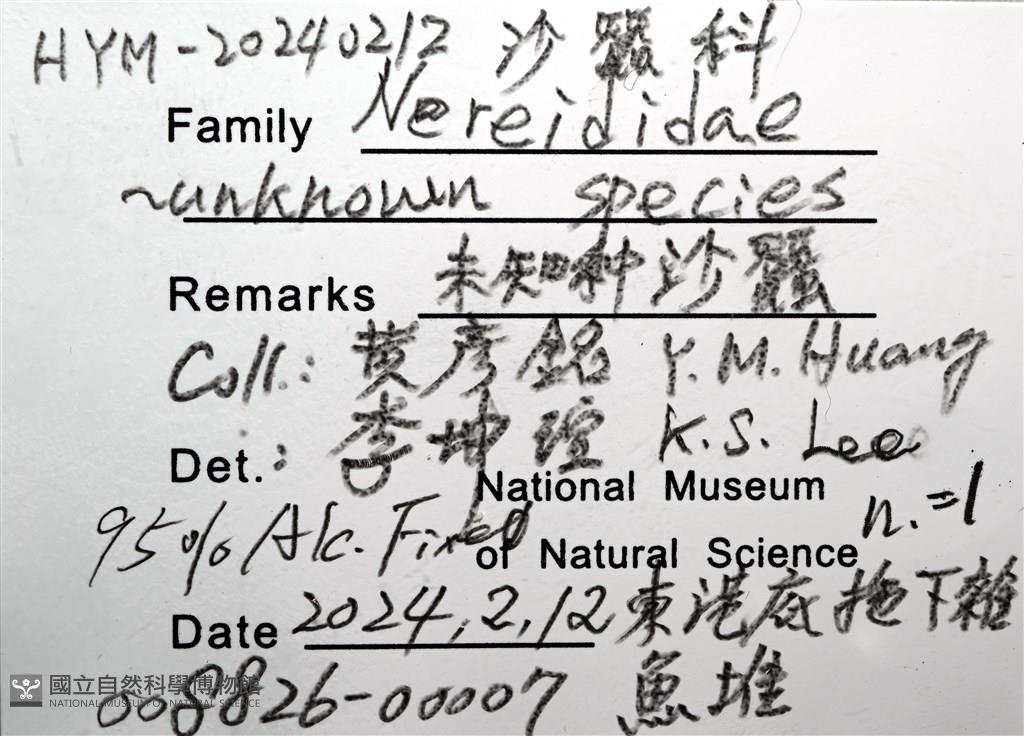 HYM-20240212 沙蠶科
Family Nereididae
~unknown species
Remarks 未知種沙蠶
Coll.: 黃彥銘 Y.M.Huang
Det.: 李坤瑄 K.S. Lee
National Museum n.=1
95% Alc. Fixed
of Natural Science
Date 2024,2,12 東港底拖下雜
魚堆
008826-00007
國立自然科學博物館
NATIONAL MUSEUM OF NATURAL SCIENCE